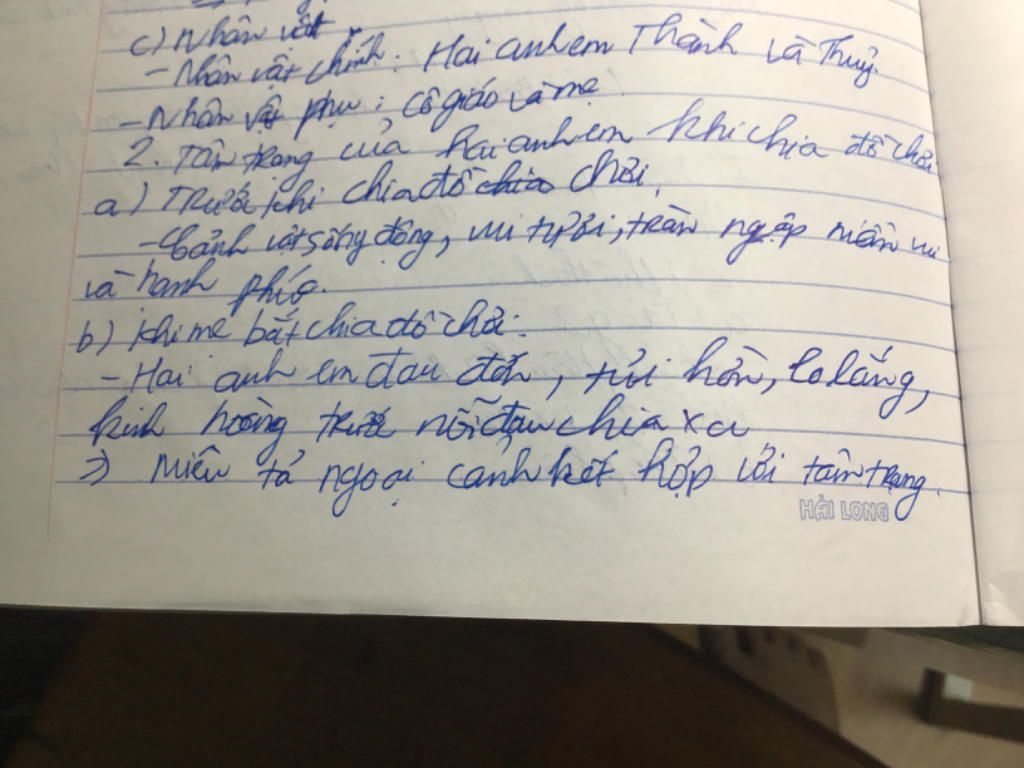 c) Nhân vật
- Nhân vật chính: Hai anh em Thành và Thuỷ.
- Nhân vật phụ: cô giáo và mẹ
2. Tâm trạng của hai anh em khi chia đồ chơi
a) Trước khi chia đồ chia chơi.
- Cảnh vật sống động, vui tươi, tràn ngập niềm vui
và hạnh phúc.
b) Khi mẹ bắt chia đồ chơi:
- Hai anh em đau đớn, tủi hờn, lo lắng,
kinh hoàng trước nỗi đau chia xa
=> Miêu tả ngoại cảnh kết hợp với tâm trạng.
HẢI LONG